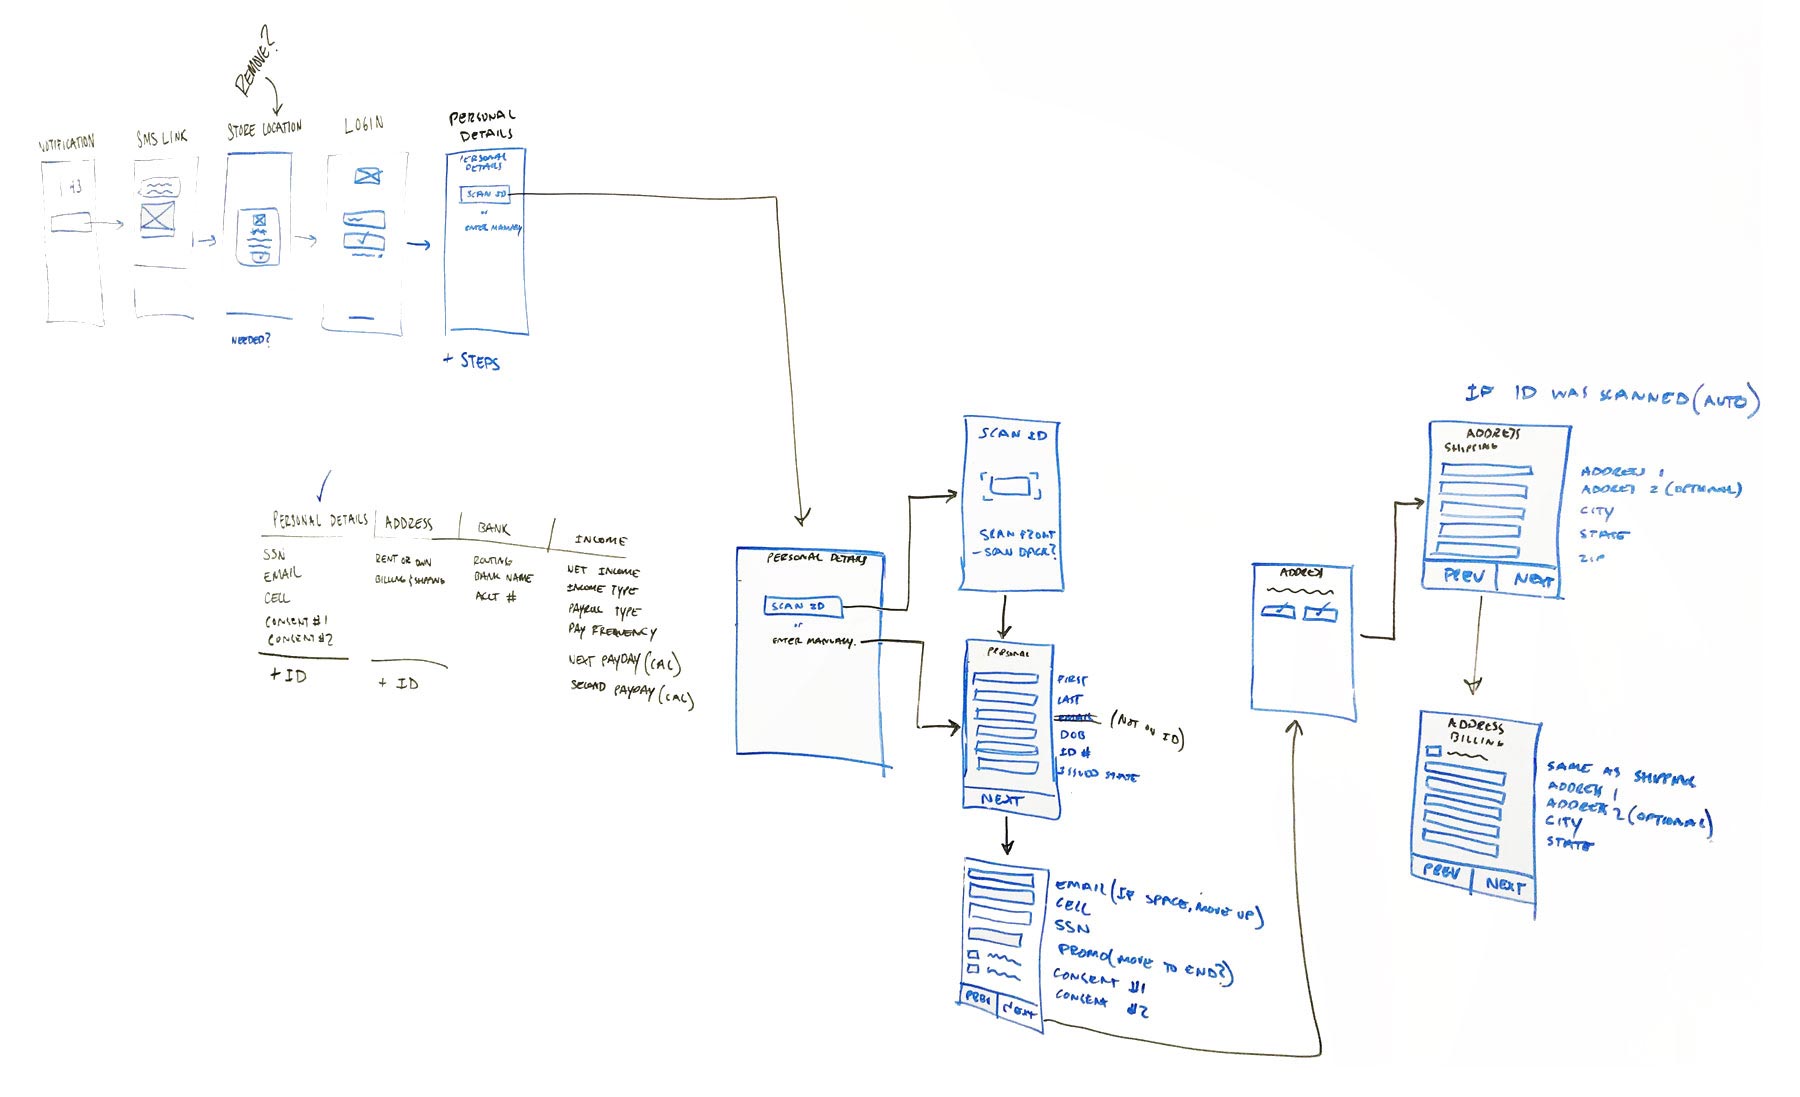 REMOVE?
NOTIFICATION
SMS LINK
STORE LOCATION
LOGIN
PERSONAL
DETAILS
PERSONAL
DETAILS
SCAN ID
or
ENTER MANUALLY
NEEDED?
+ STEPS
PERSONAL DETAILS
ADDRESS
BANK
INCOME
SSN
EMAIL
CELL
CONSENT #1
CONSENT #2
+ ID
RENT OR OWN
BILLING & SHIPPING
+ ID
ROUTING
BANK NAME
ACCT #
NET INCOME
INCOME TYPE
PAYROLL TYPE
PAY FREQUENCY
NEXT PAYDAY (CAL)
SECOND PAYDAY (CAL)
PERSONAL DETAILS
SCAN ID
or
ENTER MANUALLY.
SCAN ID
SCAN FRONT
- SCAN BACK?
PERSONAL
FIRST
LAST
EMAIL (NOT ON ID)
DOB
ID #
ISSUED STATE
NEXT
EMAIL (IF SPACE, MOVE UP)
CELL
SSN
PROMO (MOVE TO END?)
CONSENT #1
CONSENT #2
PREV
NEXT
ADDRESS
IF ID WAS SCANNED (AUTO)
ADDRESS
SHIPPING
ADDRESS 1
ADDRESS 2 (OPTIONAL)
CITY
STATE
ZIP
PREV
NEXT
ADDRESS
BILLING
SAME AS SHIPPING
ADDRESS 1
ADDRESS 2 (OPTIONAL)
CITY
STATE
PREV
NEXT